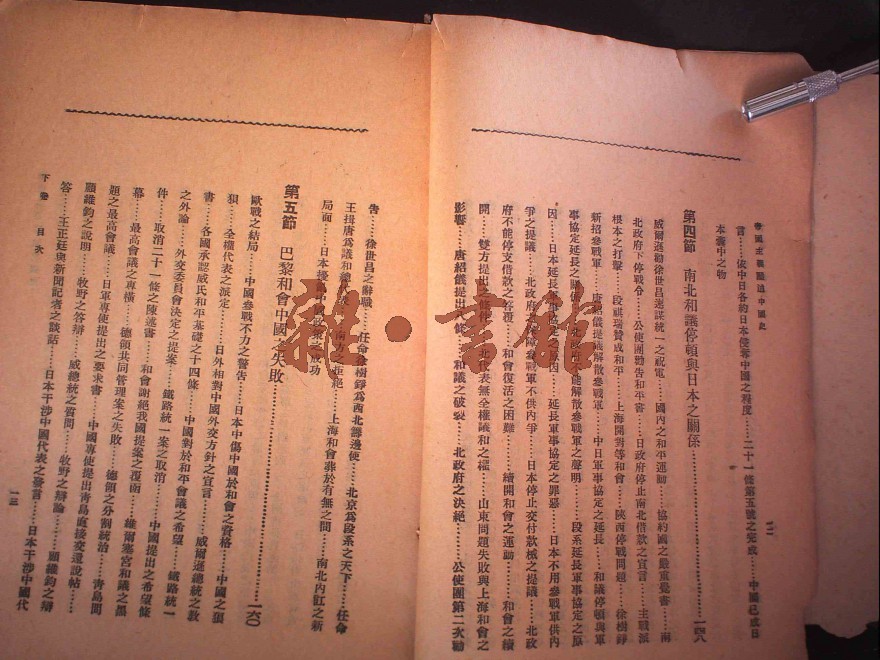 帝國主義壓迫中國史
一二
言……依中日各約日本侵奪中國之程度……二十一條第五號之完成……中國已成日
本囊中之物
第四節 南北和議停頓與日本之關係……一四八
威爾遜勸徐世昌速謀統一之祝電……國內之和平運動……協約國之嚴重覺書……南
北政府下停戰令……公使團勸告和平書……日政府停止南北借款之宣言……主戰派
根本之打擊……段祺瑞贊成和平……上海開對等和會……陝西停戰問題……徐樹錚
新招參戰軍……唐紹儀提議解散參戰軍……中日軍事協定之延長……和議停頓與軍
事協定延長之關係……北政府不能解散參戰軍之聲明……段系延長軍事協定之原
因……日本延長軍事協定之原因……延長軍事協定之罪惡……日本不用參戰軍供內
爭之提議……北政府參戰軍不供內爭……日本停止交付款械之提議……北政
府不能停支借款之答覆……和會復活之困難……續開和會之運動……和會之續
開……雙方提出之條件……北代表無全權議和之福……山東問題失敗與上海和會之
影響……唐紹儀提出八條……和議之破裂……北政府之決絕……公使團第二次勸
告……徐世昌之辭職……任命徐樹錚爲西北籌邊使……北京爲段系之天下……任命
王揖唐爲議和總代表……南方之拒絕……上海和會葬於有無之間……南北內訌之新
局面……日本擾亂中國政策之成功
第五節 巴黎和會中國之失敗……一六〇
歐戰之結局……中國參戰不力之警告……日本中傷中國於和會之資格……中國之狼
狽……全權代表之派定……日外相對中國外交方針之宣言……威爾遜總統之教
書……各國承認威氏和平基礎之十四條……中國對於和平會議之希望……鐵路統一
之外論……外交委員會決定之提案……鐵路統一案之取消……中國提出之希望條
件……取消二十一條之陳述書……和會謝絕我國提案之覆函……維爾塞宮和議之黑
幕……最高會議之專橫……德領共同管理案之失敗……德領之分割統治……青島問
題之最高會議……日軍專使提出之要求書……中國專使提出青島直接交還說帖……
顧維鈞之說明……牧野之答辯……威總統之質問……牧野之辯論……顧維鈞之辯
答……王正廷與新聞記者之談話……日本干涉中國代表之發言……日本干涉中國代
下卷 目次
一三